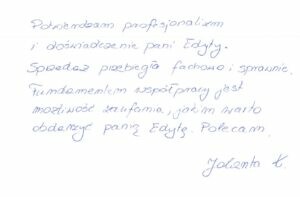 Potwierdzam profesjonalizm
i doświadczenie pani Edyty.
Sprzedaż przebiegła fachowo i sprawnie.
Fundamentem współpracy jest
możliwość zaufania, jakim warto
obdarzyć panią Edytę. Polecam.
Jolanta K.